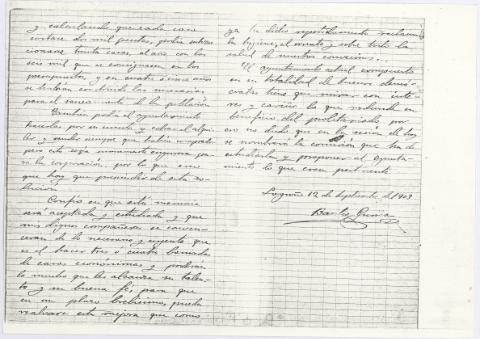 y calculando que cada casa
costase dos mil pesetas, podrian subven
cionarse treinta casas, al año con las
seis mil que se consignasen en los
presupuestos, y en cuatro ó cinco años
se habian construido las necesarias
para el saneamiento de la población
Tambien podia el ayuntamiento
hacerlas por su cuenta y cobrar el alqui
ler y mucho tiempo que
pero esto seria sumamente
para la corporación, por lo que creo
que hay que prescindir de esta so
lución
Confio en que esta memoria
será aceptada y estudiada y que
mis dignos compañeros se conven
ceran de lo necesario y urgente que
es el hacer tres ó cuatro barriadas
de casas economicas y pondran
lo mucho que les alcanza su talen
to y su buena fe, para que
en un plazo brevisimo, pueda
realizarse esta mejora que como
ya he dicho repetidamente reclaman
la higiene, el ornato y sobre todo la
salud de nuestros convecinos.
El ayuntamiento actual compuesto
en su totalidad de buenos demo
cratas tiene que mirar con inte
res y cariño lo que redunde en
beneficio del proletariado por
eso no dudo que en la sesion de hoy
se nombrará la comisión que ha de
estudiarlas y proponer al ayunta
miento lo que crea pertinente
Logroño 12 de septiembre de 1903